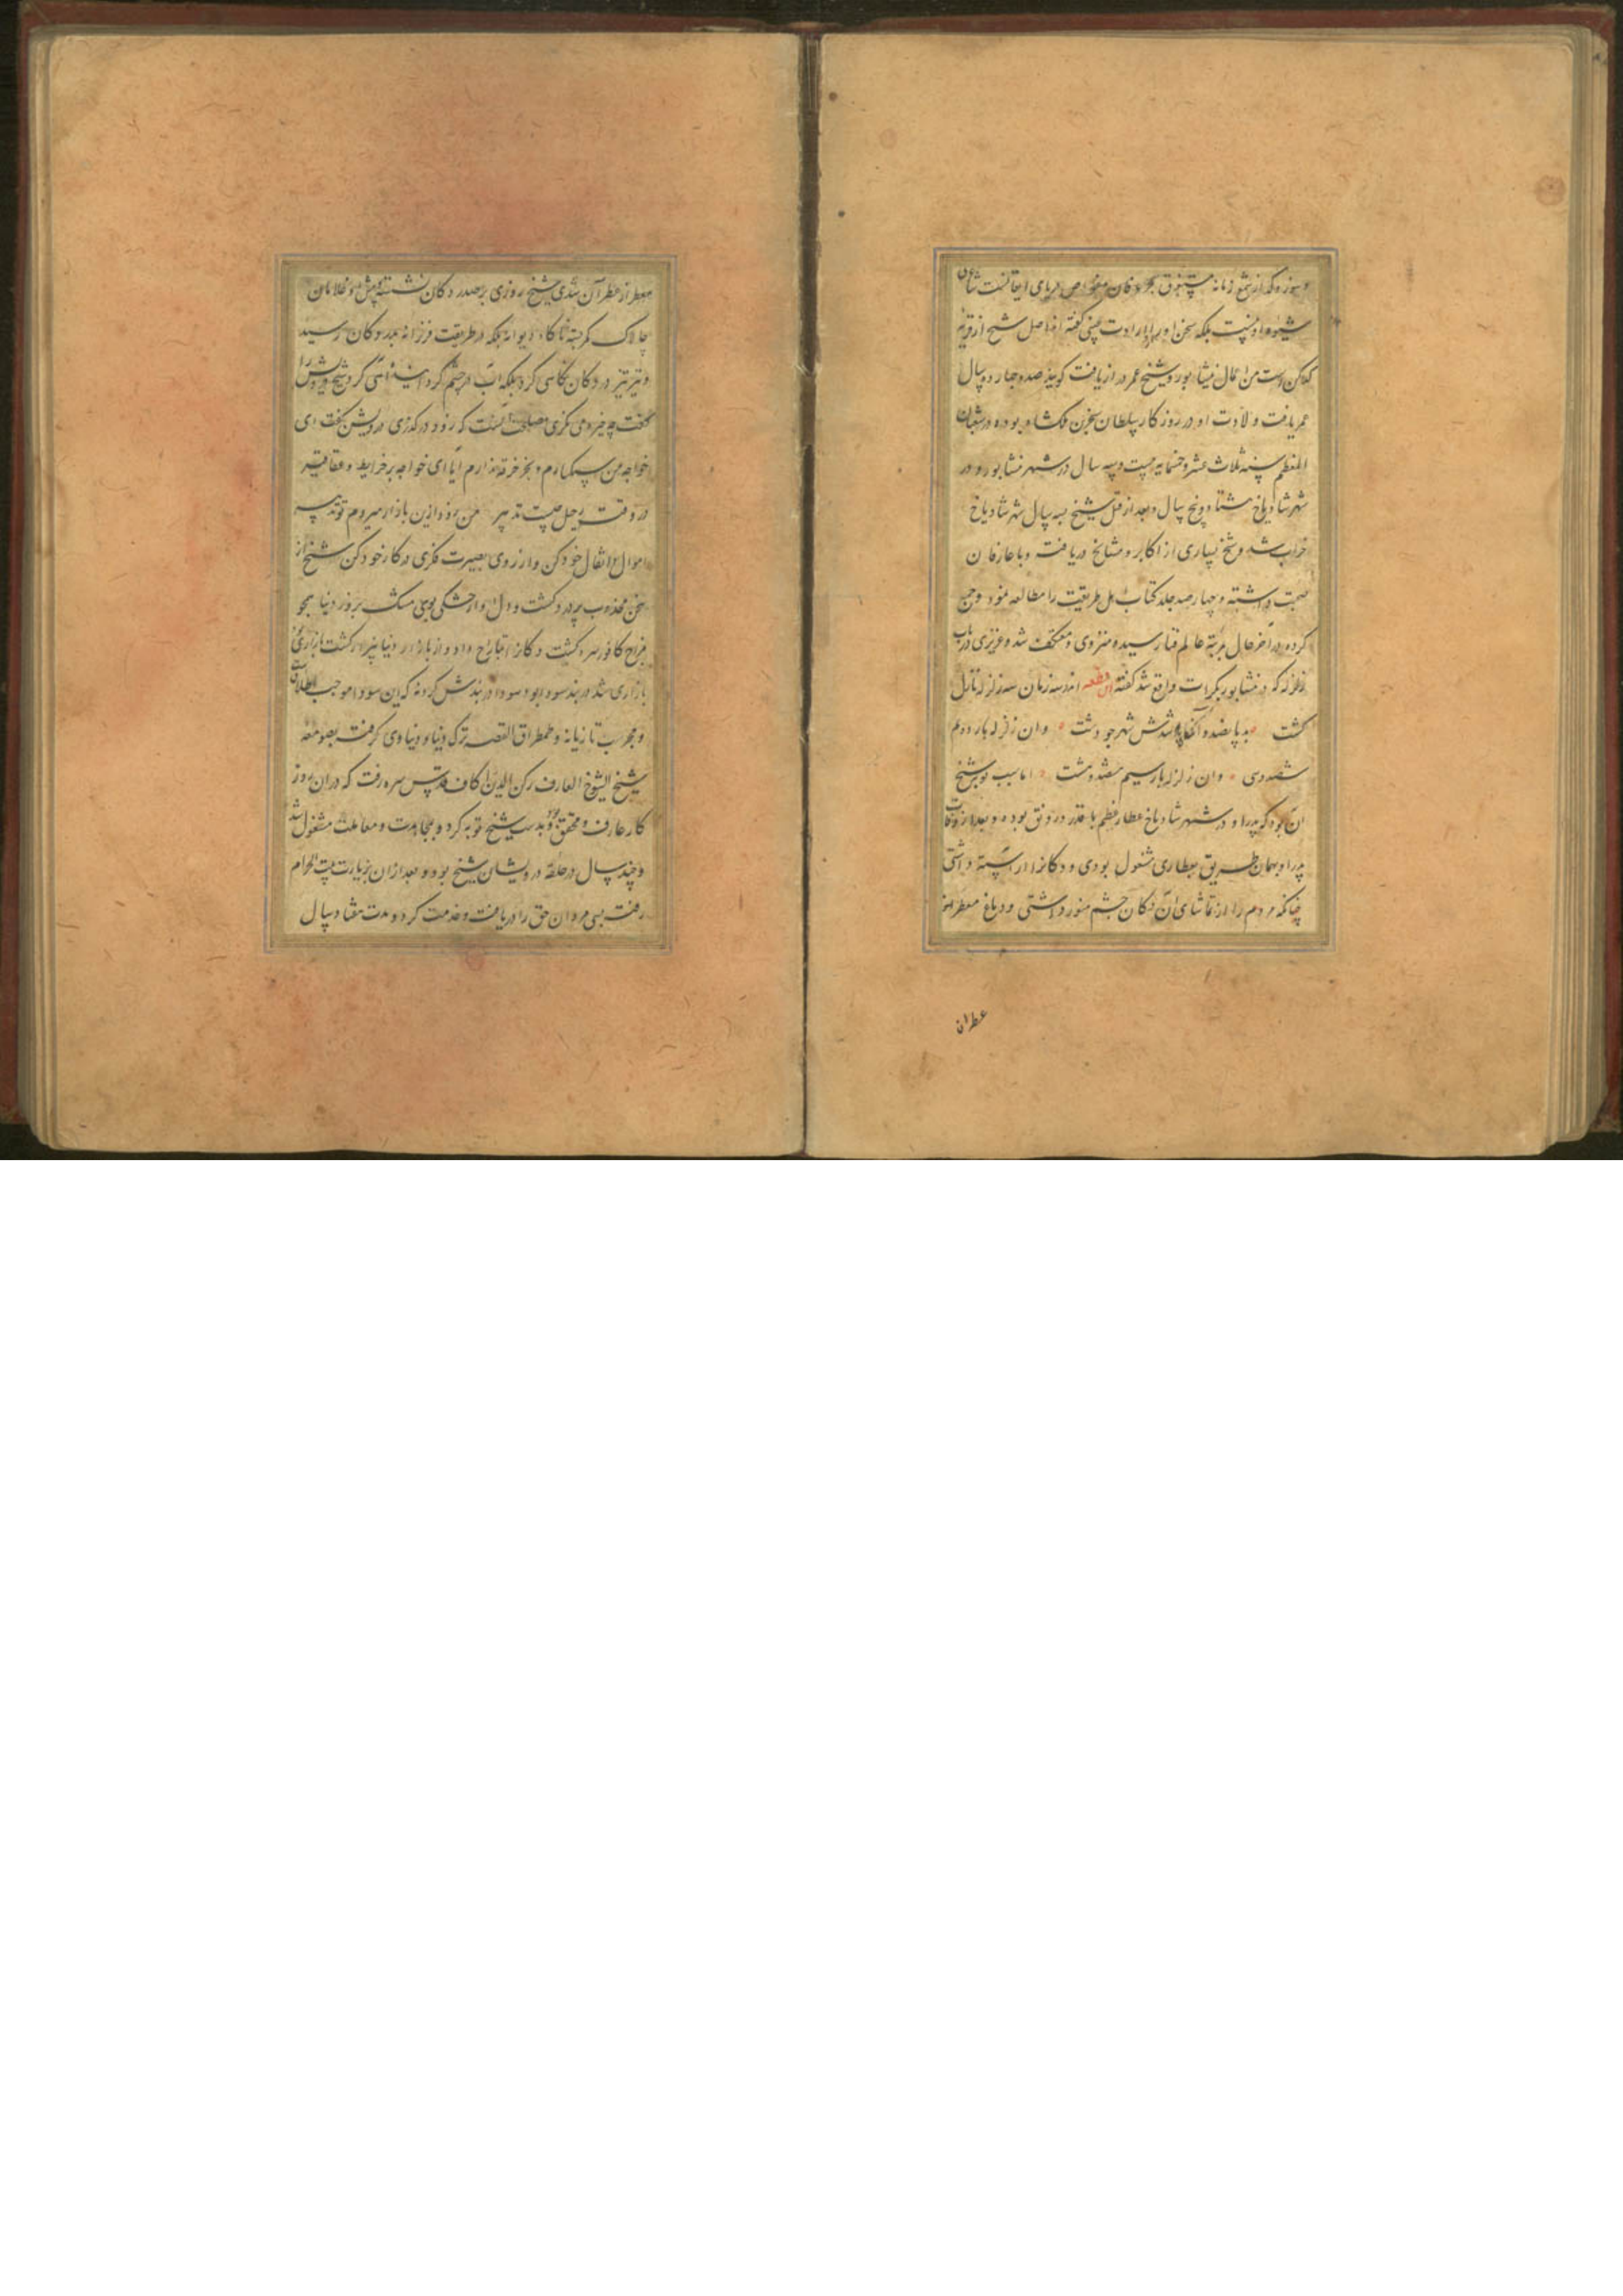 و سوز و گداز شمع زمانه مستغرق بحر عرفان و غواص دریای ایقانست شاعری
شیوه او نیست بلکه سخن او را واردات غیبی گفته اند اصل شیخ از قریه
کدکن است من اعمال نیشابور و شیخ عمر دراز یافت گویند صد و چهارده سال
عمر یافت و لادت او در روزگار سلطان سنجر بن ملکشاه بوده در شعبان
المعظم سنه ثلاث عشر و خمسمایه بیست و سه سال در شهر نشابور و در
شهر شادیاخ هشتاد و پنج سال و بعد از قتل شیخ بسه سال شهر شادیاخ
خراب شد و شیخ بسیاری از اکابر و مشایخ دریافته و با عارفان
صحبت داشته و چهارصد جلد کتاب اهل طریقت را مطالعه نمود و جمع
کرده در آخر حال بمرتبه عالم فنا رسیده منزوی و معتکف شد و عزیزی در باب
زلزله که در نشابور بکرات واقع شد گفته این قطعه اندر سه زمان سه زلزله نازل
گشت بد پانصد و اند که شدش شهر چو دشت وان زلزله بار دوم
ششصد و سی وان زلزله بار سیم هشصد و هشت اما سبب توبه شیخ
آن بود که پدر او در شهر شادیاخ عطار عظیم با قدر و رونق بوده و بعد از وفات
پدر او بهمان طریق بعطاری مشغول بودی و دکان آراسته داشتی
چنانکه مردم را از تماشای آن دکان چشم منور داشتی و دماغ معطر
عطران
معطر از عطر آن شدی شیخ روزی بر صدر دکان نشسته و پیش او غلامان
چالاک کمر بسته ناگاه دیوانه بلکه در طریقت فرزانه بدر دکان رسید
و تیز تیز در دکان نگاهی کرد بلکه آب در چشم گردانیده آهی کرد شیخ درویش را
گفت چه خیره می نگری مصلحت آنست که زود درگذری درویش گفت ای
خواجه من سبکبارم و بجز خرقه ندارم اما ای خواجه بر خرایط و عقاقیر
در وقت رحیل چیست تدبیر من زود ازین بازار میروم تو تدبیر
اموال و اثقال خود کن و از روی بصیرت فکری در کار خود کن شیخ از
سخن مجذوب پر درد گشت و دل او از خشکی بوی مشک بر روز دنیا همچو
مزاج کافور سرد گشت دکان بتاراج داد و از بازار دنیا بیزار گشت بازاری
بازاری شد در بند سودا بود سودا در بندش کرد نه که این سودا موجب اطلاق
و مخرب تازیانه و طمطراق القصه ترک دنیا و دنیاوی گرفت بصومعه
شیخ الشیوخ العارف رکن الدین اکاف قدس سره رفت که در آن روز
کار عارف و محقق بود بدست شیخ توبه کرد و بمجاهدت و معاملت مشغول شد
و چند سال در حلقه درویشان شیخ بود و بعد از آن بزیارت بیت الحرام
رفت بسی مردان حق را دریافت و خدمت کرد و مدت هفتاد سال